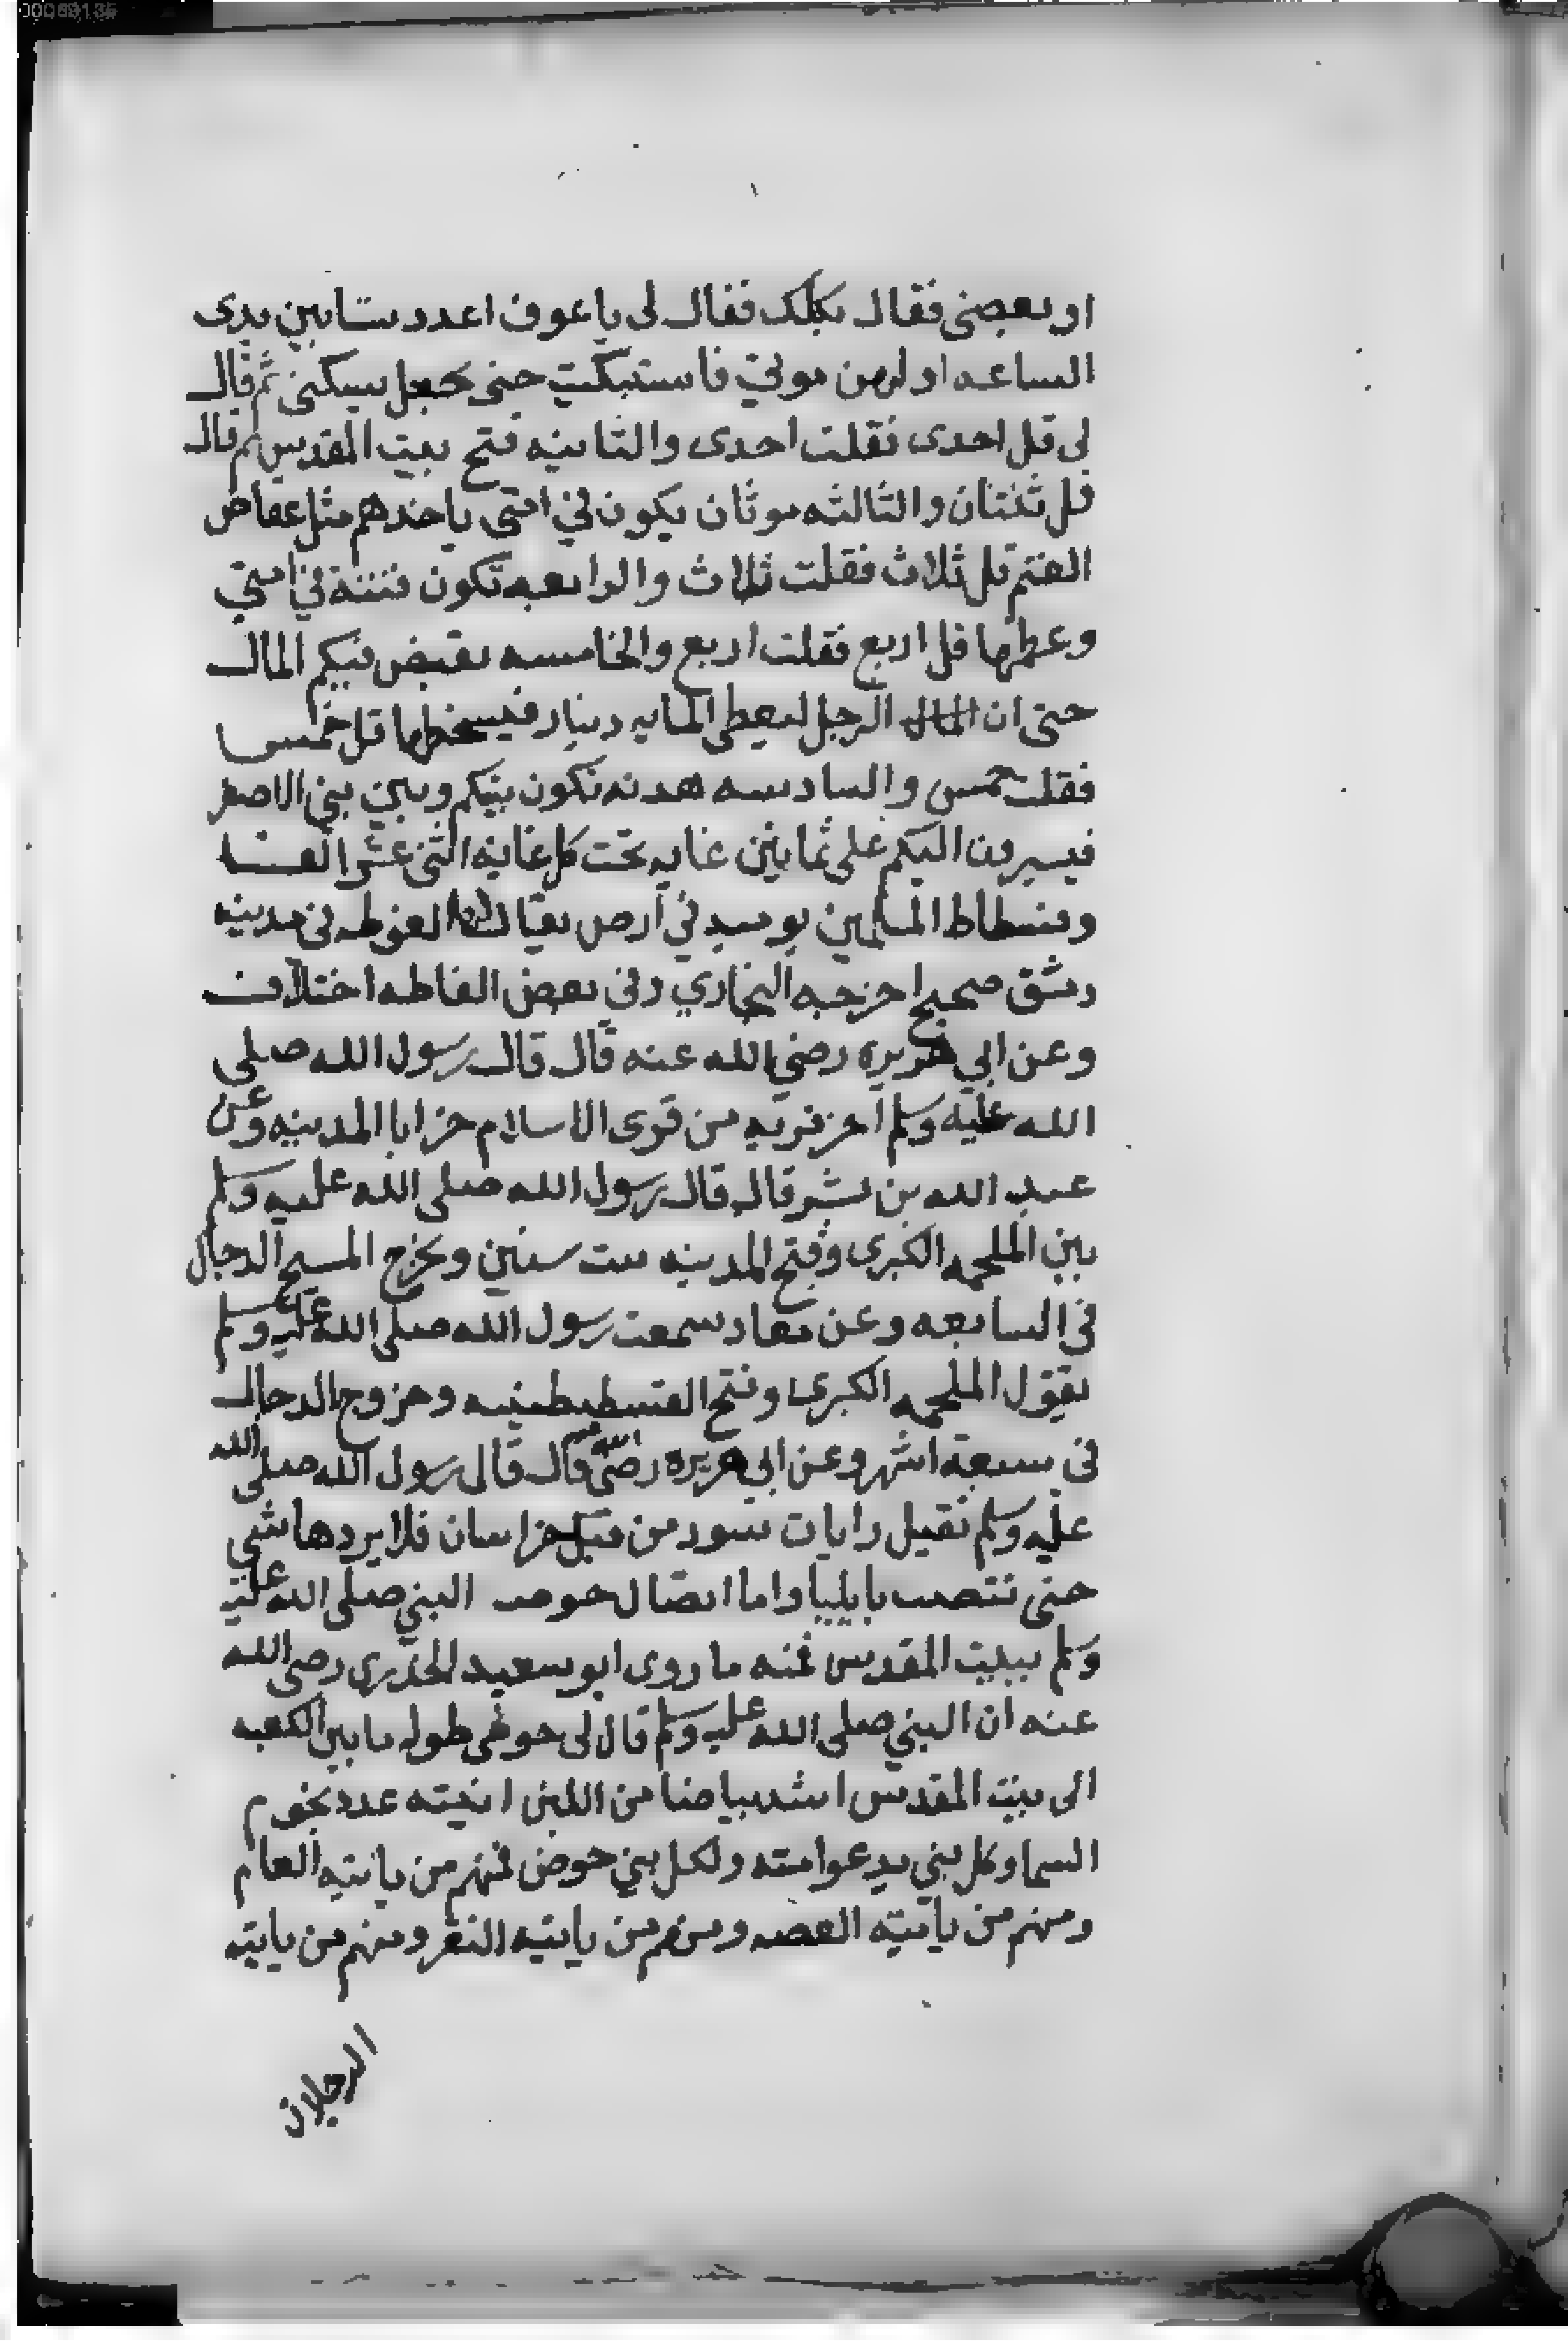 00069135
او بعضي فقال بكلك فقال لي يا عوف اعدد ستا بين يدي
الساعه اولهن موتي فاستبكيت حتى جعل يسكتني ثم قال
لي قل احدى فقلت احدى والثانيه فتح بيت المقدس ثم قال
قل ثنتان والثالثه موتان يكون في امتي ياخذهم مثل عقاص
الغنم قل ثلاث فقلت ثلاث والرابعه تكون فتنة في امتي
وعظمها قل اربع فقلت اربع والخامسه يفيض فيكم المال
حتى ان الرجل ليعطى المايه دينار فيسخطها قل خمس
فقلت خمس والسادسه هدنه تكون بينكم وبين بني الاصفر
فيسيرون اليكم على ثمانين غايه تحت كل غاية اثني عشر الفا
وفسطاط المسلمين يوميذ في ارض يقال لها الغوطه في مدينه
دمشق صحيح اخرجه البخاري وفي بعض الفاظه اختلاف
وعن ابي هريره رضي الله عنه قال قال رسول الله صلى
الله عليه وسلم اخر قريه من قرى الاسلام خرابا المدينه وعن
عبد الله بن بشر قال قال رسول الله صلى الله عليه وسلم
بين الملحمه الكبرى وفتح المدينه ست سنين ويخرج المسيح الدجال
في السابعه وعن معاد سمعت رسول الله صلى الله عليه وسلم
يقول الملحمه الكبرى وفتح القسطيطينيه وخروج الدجال
في سبعة اشهر وعن ابي هريره رضي الله عنه قال قال رسول الله صلى الله
عليه وسلم تقبل رايات سود من قبل خراسان فلا يردها شي
حتى تنصب بايليا واما اتصال حوض النبي صلى الله عليه
وسلم ببيت المقدس فمنه ما روى ابو سعيد الخدري رضي الله
عنه ان النبي صلى الله عليه وسلم قال لي حوضي طوله ما بين الكعبه
الى بيت المقدس اشد بياضا من اللبن انيته عدد نجوم
السما وكل نبي يدعوا امته ولكل نبي حوض فمنهم من ياتيه العام
ومنهم من ياتيه العصبه ومنهم من ياتيه النفر ومنهم من ياتيه
الرجلان